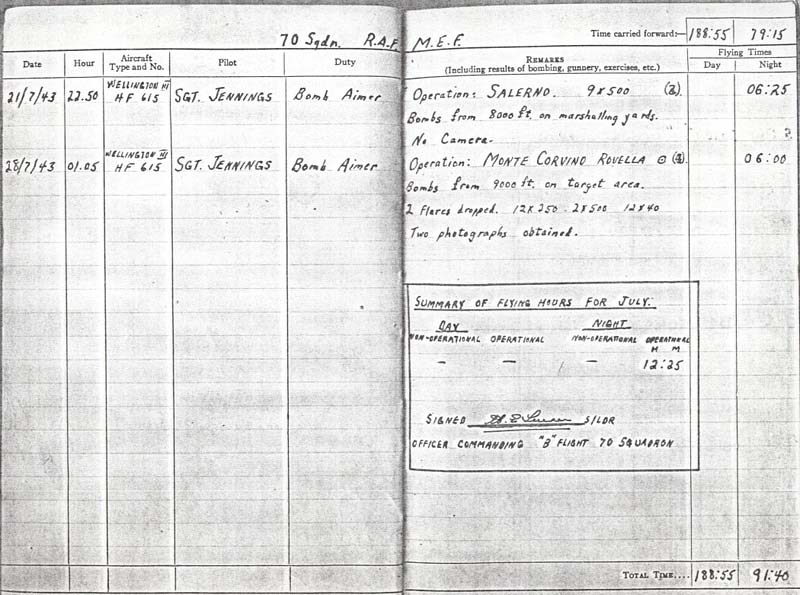 70 Sqdn. R.A.F. M.E.F.
Time carried forward:— 188:55 79:15
Date Hour Aircraft Type and No. Pilot Duty REMARKS (Including results of bombing, gunnery, exercises, etc.) Flying Times Day Night
21/7/43 22.50 WELLINGTON III HF 615 SGT. JENNINGS Bomb Aimer Operation: SALERNO. 9x500 06:25
Bombs from 8000 ft. on marshalling yards.
No Camera.
28/7/43 01.05 WELLINGTON III HF 615 SGT. JENNINGS Bomb Aimer Operation: MONTE CORVINO ROVELLA 06:00
Bombs from 9000 ft. on target area.
2 Flares dropped. 12x250. 2x500 12x40
Two photographs obtained.
SUMMARY OF FLYING HOURS FOR JULY.
DAY NIGHT
NON-OPERATIONAL OPERATIONAL NON-OPERATIONAL OPERATIONAL
H M
— — — 12:25
SIGNED S/LDR
OFFICER COMMANDING "B" FLIGHT 70 SQUADRON
TOTAL TIME.... 188:55 91:40